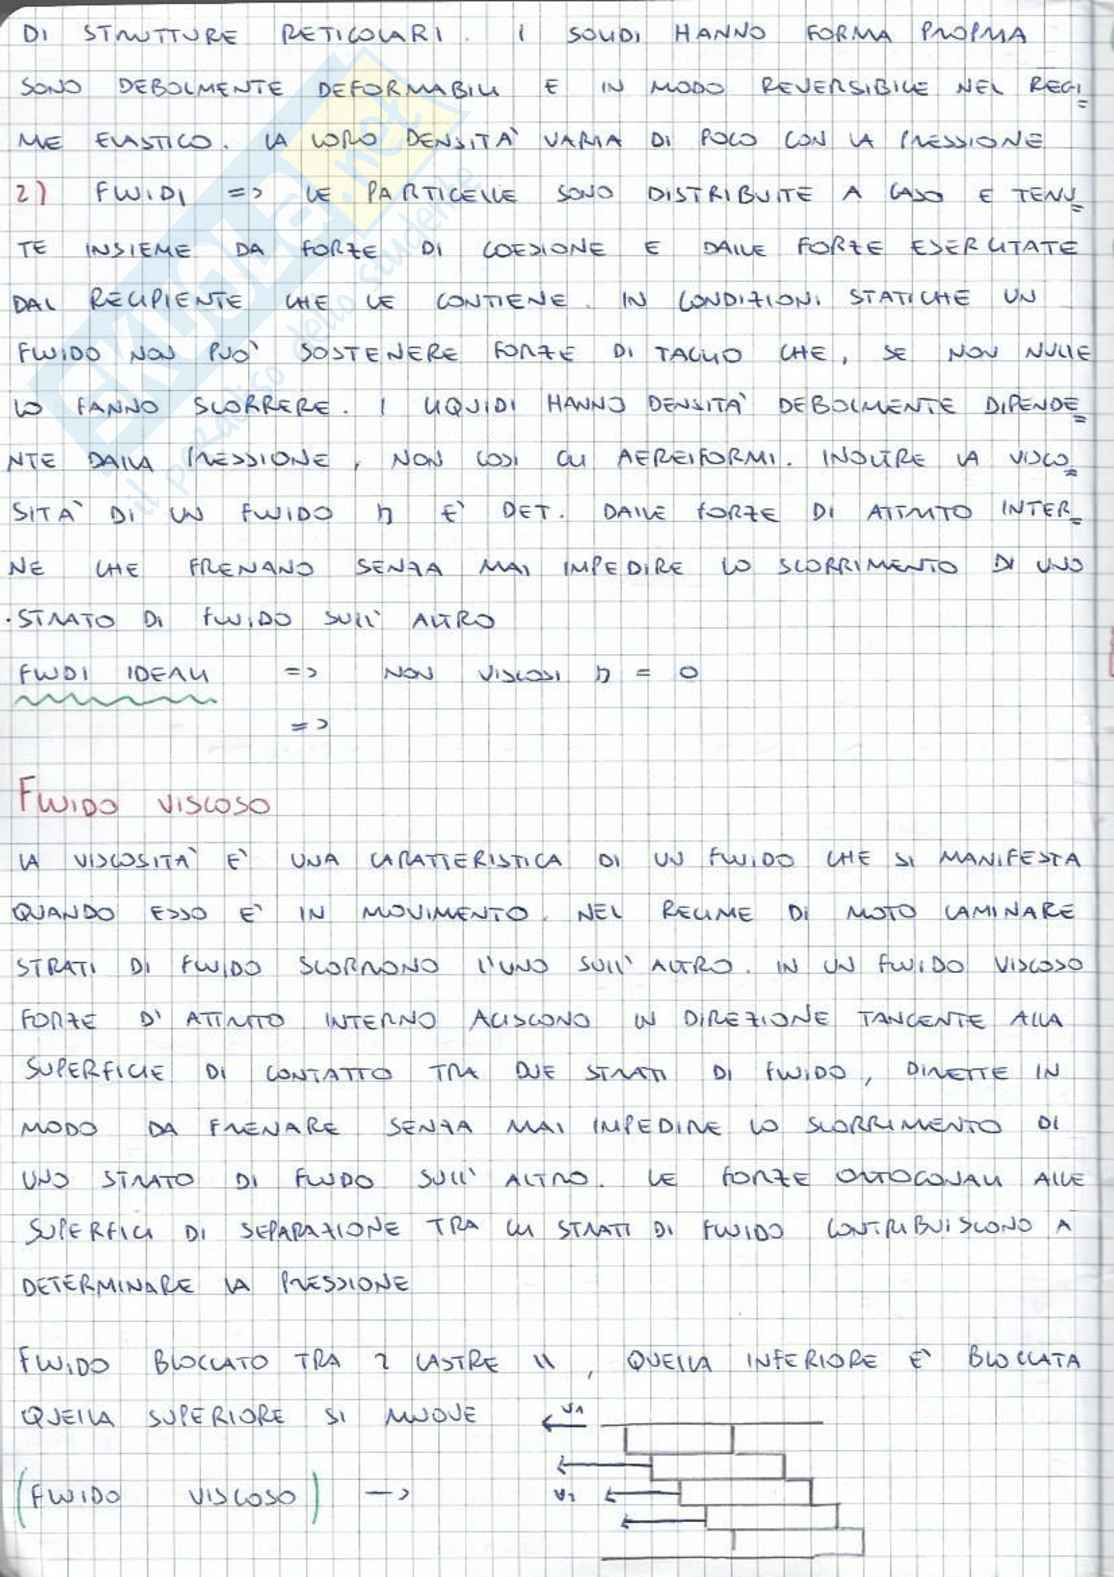 DI STRUTTURE RETICOLARI. I SOLIDI HANNO FORMA PROPRIA
SONO DEBOLMENTE DEFORMABILI E IN MODO REVERSIBILE NEL REGI=
ME ELASTICO. LA LORO DENSITÀ VARIA DI POCO CON LA PRESSIONE
2) FLUIDI => LE PARTICELLE SONO DISTRIBUITE A CASO E TENU=
TE INSIEME DA FORZE DI COESIONE E DALLE FORZE ESERCITATE
DAL RECIPIENTE CHE LE CONTIENE. IN CONDIZIONI STATICHE UN
FLUIDO NON PUÒ SOSTENERE FORZE DI TAGLIO CHE, SE NON NULLE
LO FANNO SCORRERE. I LIQUIDI HANNO DENSITÀ DEBOLMENTE DIPENDE=
NTE DALLA PRESSIONE, NON COSI GLI AEREIFORMI. INOLTRE LA VISCO=
SITÀ DI UN FLUIDO η È DET. DALLE FORZE DI ATTRITO INTER=
NE CHE FRENANO SENZA MAI IMPEDIRE LO SCORRIMENTO DI UNO
STRATO DI FLUIDO SULL' ALTRO
FLUIDI IDEALI => NON VISCOSI η = 0
=>
FLUIDO VISCOSO
LA VISCOSITÀ È UNA CARATTERISTICA DI UN FLUIDO CHE SI MANIFESTA
QUANDO ESSO È IN MOVIMENTO. NEL REGIME DI MOTO LAMINARE
STRATI DI FLUIDO SCORRONO L'UNO SULL' ALTRO. IN UN FLUIDO VISCOSO
FORZE D' ATTRITO INTERNO AGISCONO IN DIREZIONE TANGENTE ALLA
SUPERFICIE DI CONTATTO TRA DUE STRATI DI FLUIDO, DIRETTE IN
MODO DA FRENARE SENZA MAI IMPEDIRE LO SCORRIMENTO DI
UNO STRATO DI FLUIDO SULL' ALTRO. LE FORZE ORTOGONALI ALLE
SUPERFICI DI SEPARAZIONE TRA GLI STRATI DI FLUIDO CONTRIBUISCONO A
DETERMINARE LA PRESSIONE
FLUIDO BLOCCATO TRA 2 LASTRE \\ , QUELLA INFERIORE È BLOCCATA
QUELLA SUPERIORE SI MUOVE
v1
(FLUIDO VISCOSO) ->
v2
SKUOLA.net
il paradiso dello studente